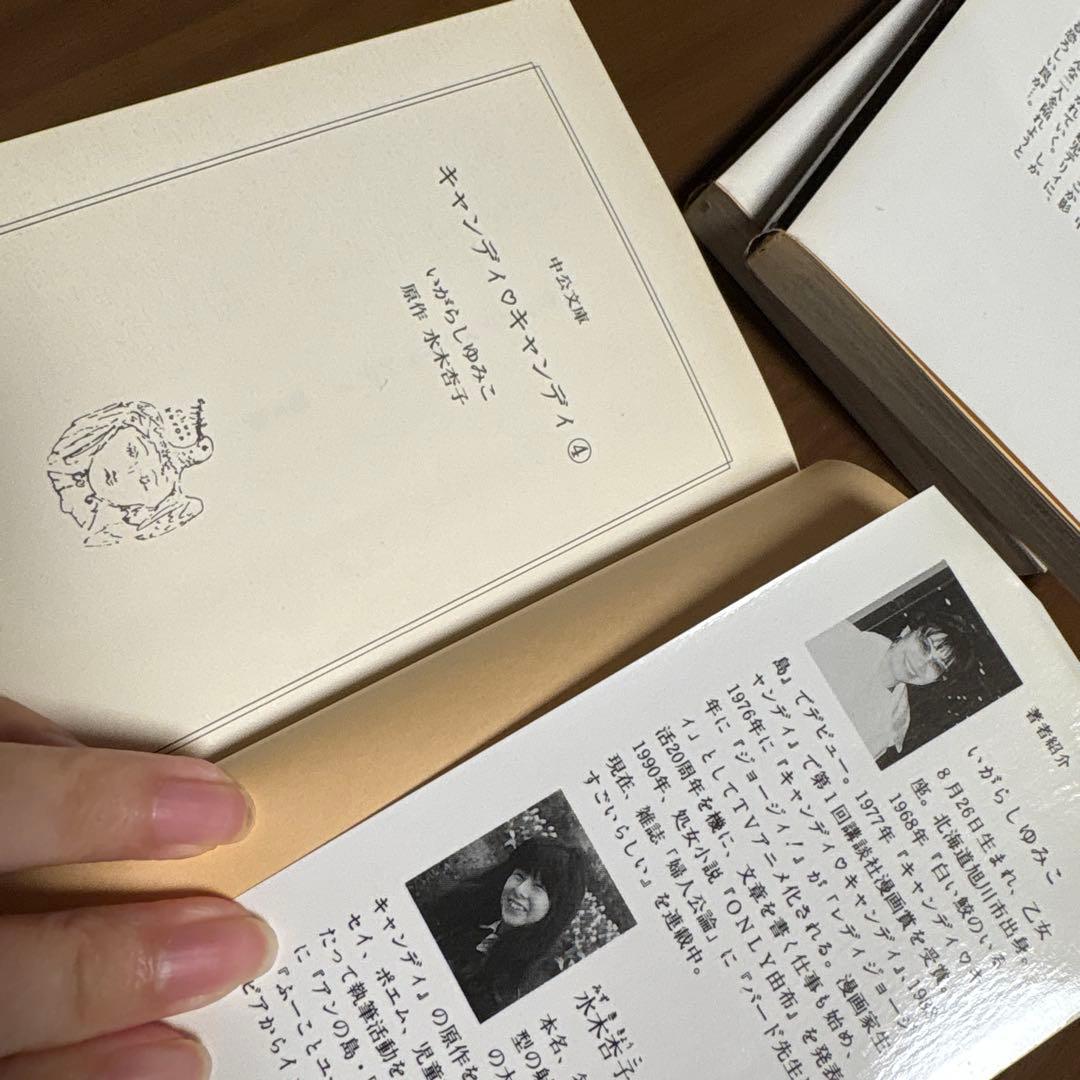 中公文庫
キャンディ♡キャンディ④
いがらしゆみこ
原作 水木杏子
著者紹介
いがらしゆみこ
8月26日生まれ、乙女
座。北海道旭川市出身。
1968年『白い鮫のいる
島』でデビュー。1977年『キャンディ♡キ
ャンディ』で第1回講談社漫画賞を受賞。
1976年に『キャンディ♡キャンディ』、198
年に『ジョージィ!』が「レディジョージ
ィ」としてTVアニメ化される。漫画家生
活20周年を機に、文章を書く仕事も始め、
1990年、処女小説『ONLY由布』を発表
現在、雑誌「婦人公論」に『バード先生
すごいらしい』を連載中。
水木杏子
みずききょうこ
本名、
型の射
の大
キャンディ』の原作を
セイ、ポエム、児童
たって執筆活動を
に『アンの島・
『ふーことユ
ピアからイ